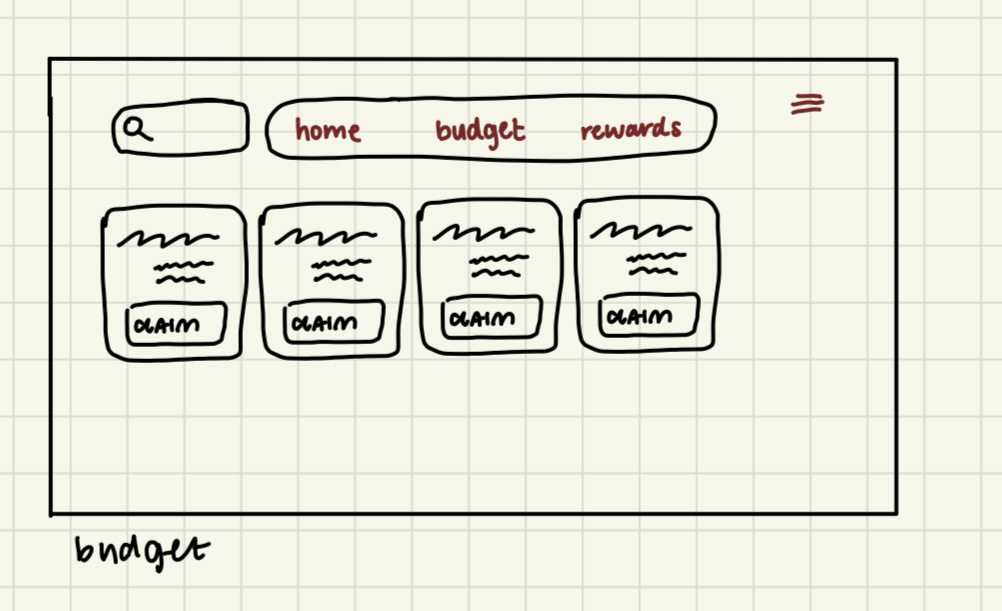 home budget rewards
CLAIM CLAIM CLAIM CLAIM
budget